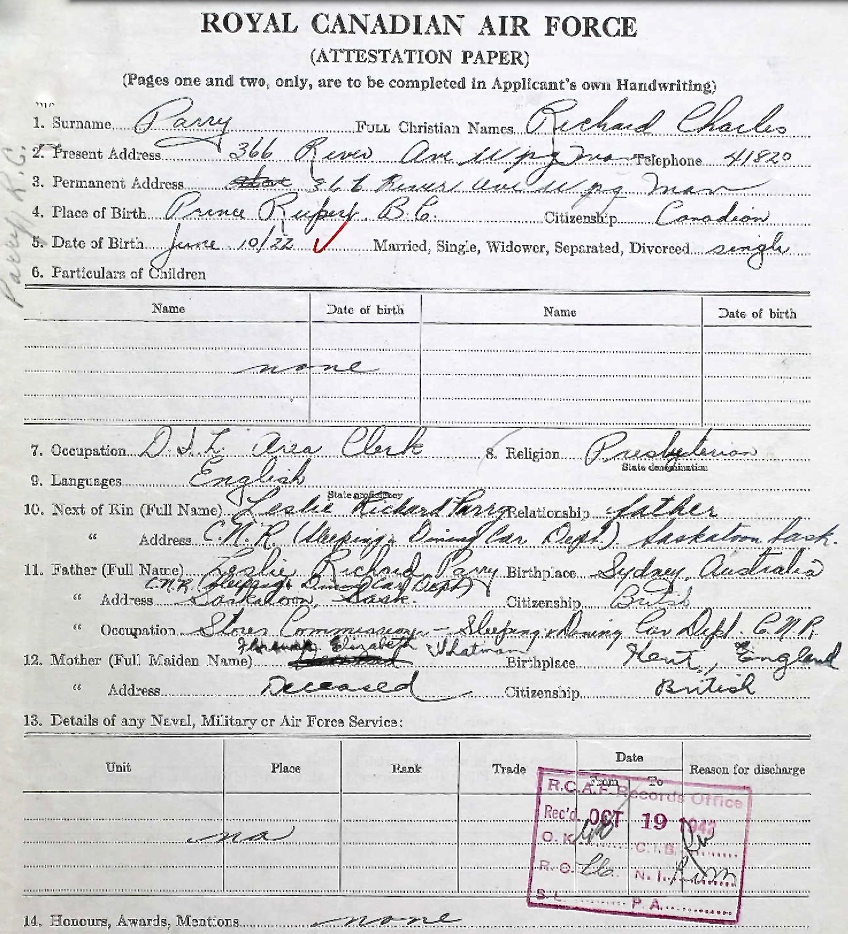 ROYAL CANADIAN AIR FORCE
(ATTESTATION PAPER)
(Pages one and two, only, are to be completed in Applicant's own Handwriting)
Parry, R.C.
1. Surname Parry FULL Christian Names Richard Charles
2. Present Address 366 River Ave Wpg Man Telephone 41820
3. Permanent Address 366 River Ave Wpg Man
4. Place of Birth Prince Rupert B.C. Citizenship Canadian
5. Date of Birth June 10/22 ✓ Married, Single, Widower, Separated, Divorced single
6. Particulars of Children
Name Date of birth Name Date of birth
none
7. Occupation Area Clerk 8. Religion Presbyterian
State denomination
9. Languages English
State proficiency
10. Next of Kin (Full Name) Leslie Richard Parry Relationship father
" Address C.N.R. (Sleeping & Dining Car Dept) Saskatoon Sask.
11. Father (Full Name) Leslie Richard Parry Birthplace Sydney, Australia
C.N.R. Sleeping & Dining Car Dept
" Address Saskatoon, Sask. Citizenship British
" Occupation Stores Commissary - Sleeping & Dining Car Dept C.N.R.
Florence Elizabeth Whatman
12. Mother (Full Maiden Name) Birthplace Kent, England
" Address Deceased Citizenship British
13. Details of any Naval, Military or Air Force Service:
Unit Place Rank Trade Date From To Reason for discharge
na
R.C.A.F. Records Office
Rec'd OCT 19 194
O.K. C.I.B.
R.O. N.I.
S.L. P.A.
14. Honours, Awards, Mentions none